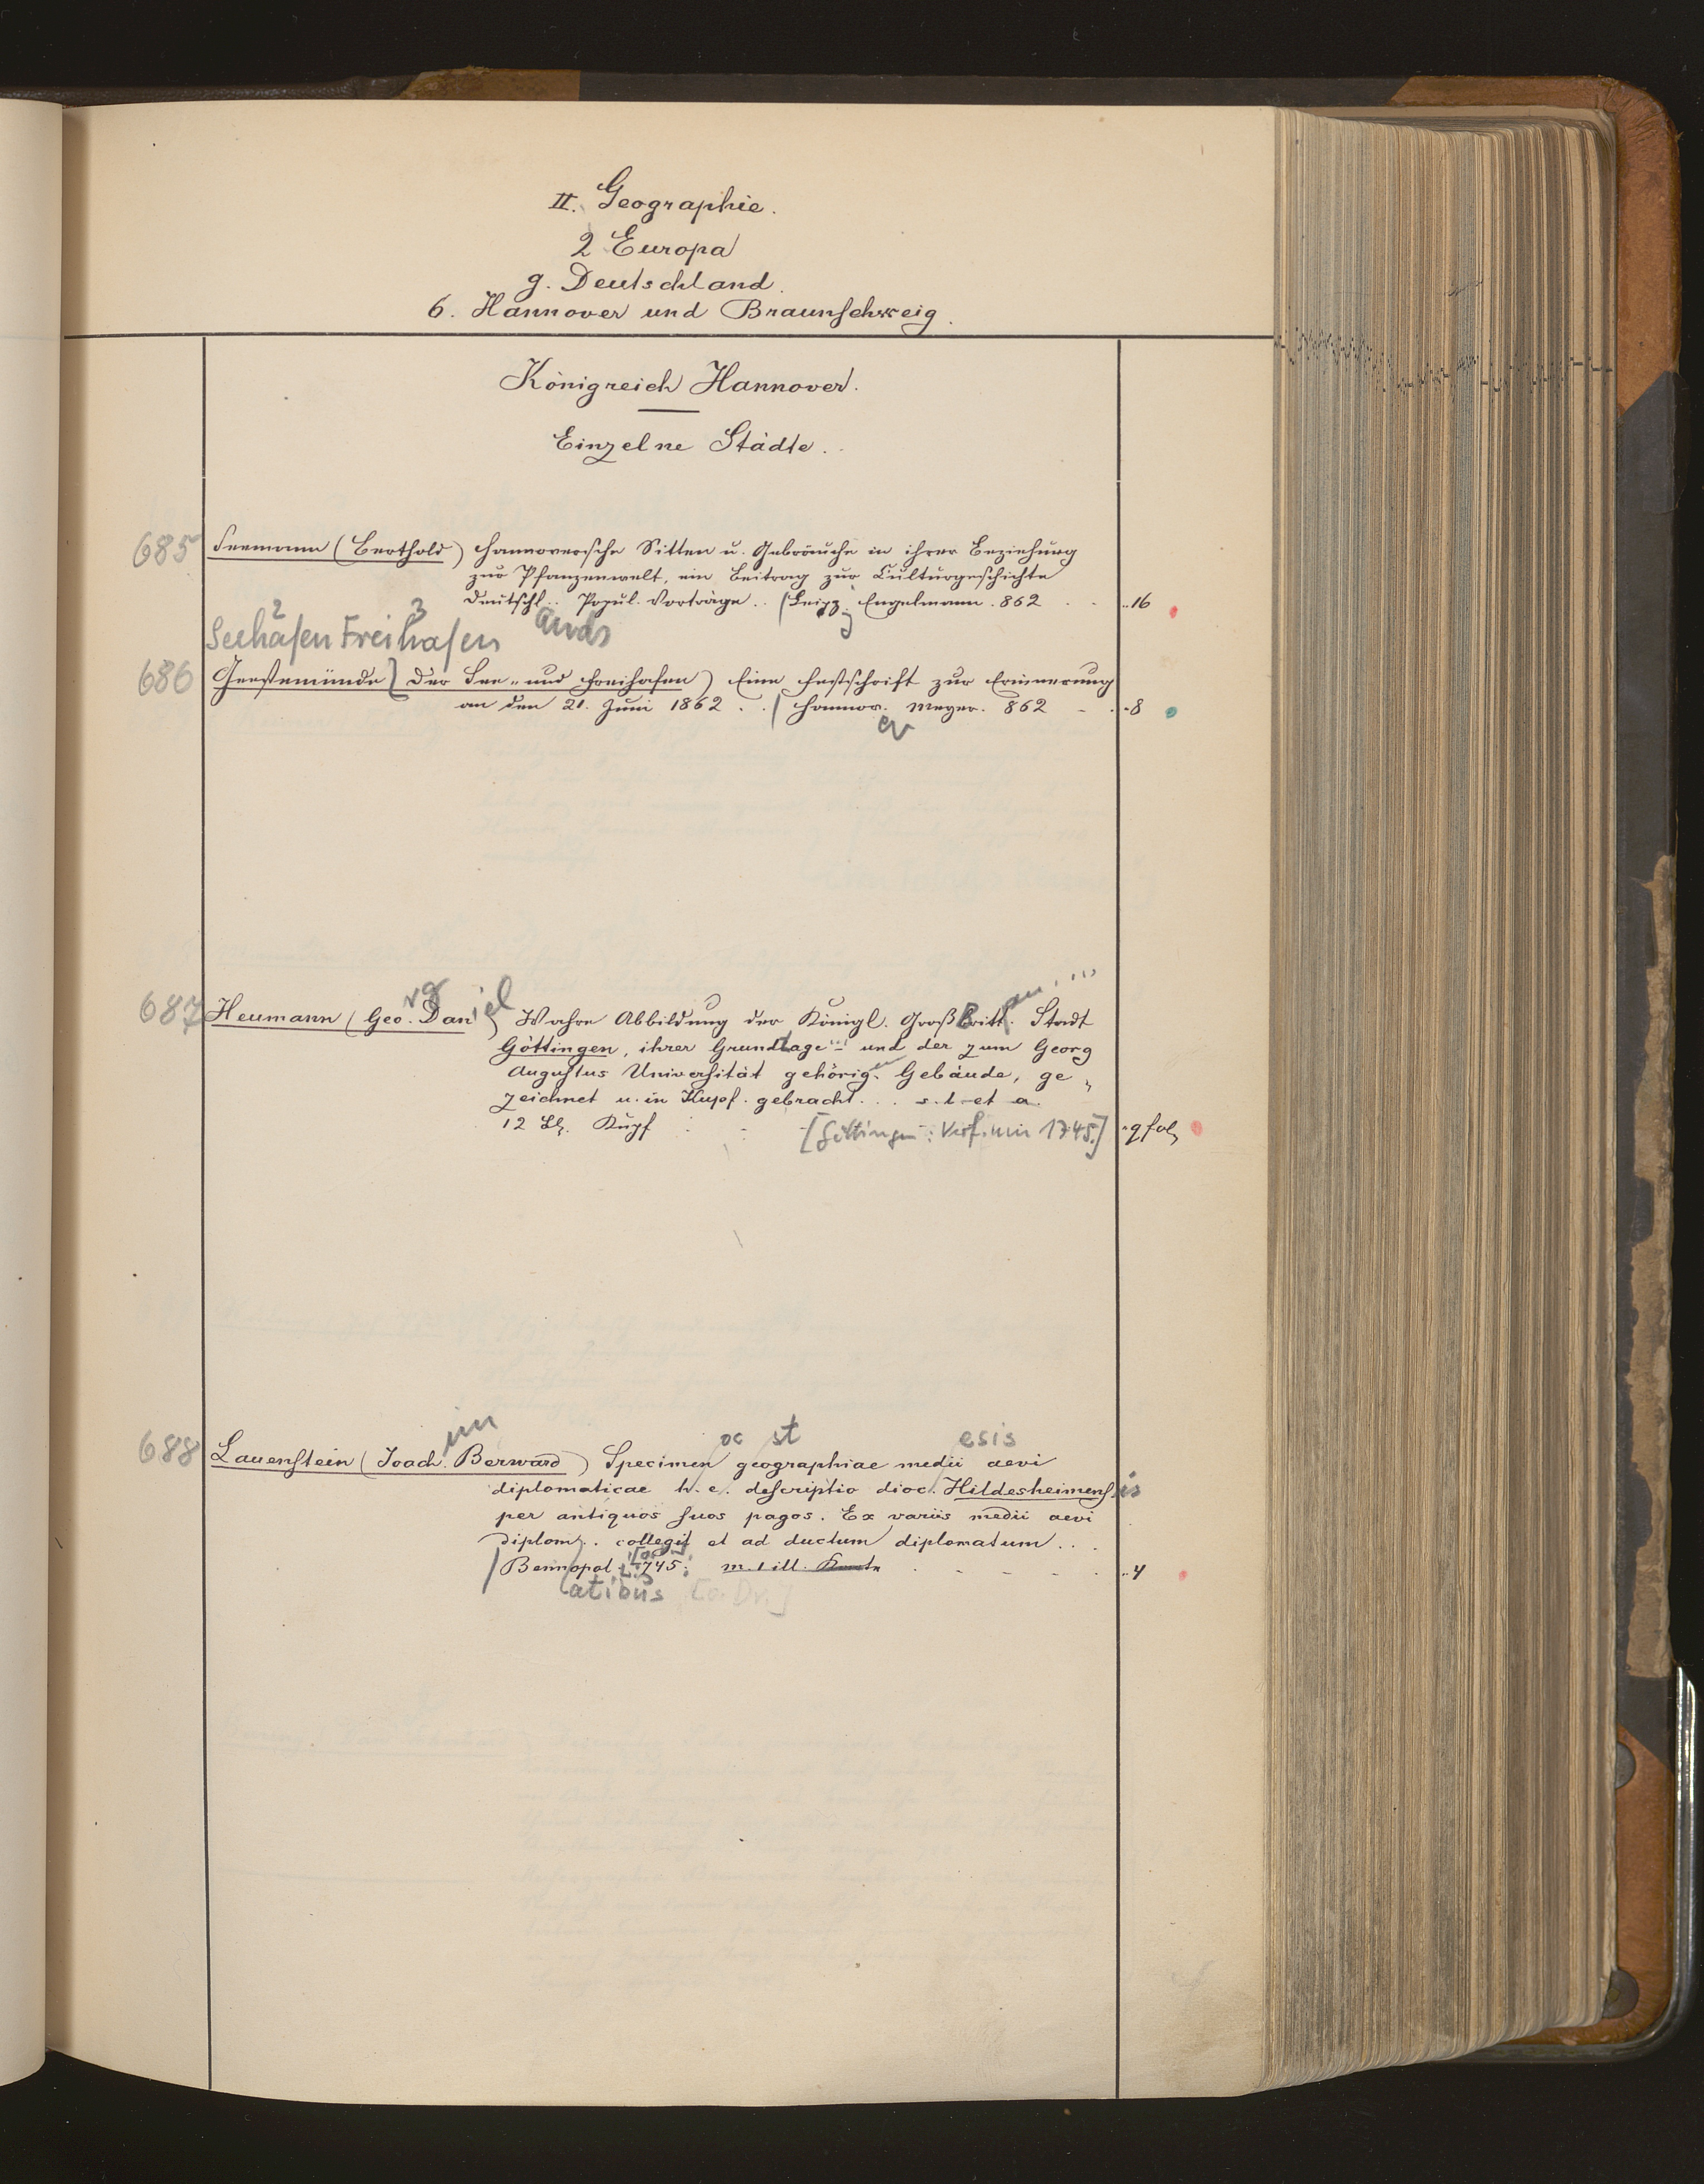 II. Geographie.
2 Europa
g. Deutschland.
6. Hannover und Braunschweig.
Königreich Hannover.
Einzelne Städte.
685 Seemann (Berthold) Hannoversche Sitten u. Gebräuche in ihrer Beziehung
zur Pflanzenwelt, ein Beitrag zur Culturgeschichte
Deutschl.. Popul. Vorträge.. (Leipz. Engelmann. 862 . . ..16
2 3 ands
Seehäfen Freihafen
686 Geestemünde] Der See- und Freihafen) Eine Festschrift zur Erinnerung
an den 21. Juni 1862 . ./ Hannov. Meyer. 862 - . -8
er
rg iel
687 Heumann (Geo. Dan) Wahre Abbildung der Königl. Groß Britt. Stadt
Göttingen, ihrer Grundlage und der zum Georg
Augustus Universität gehörig. Gebäude, ge-
zeichnet u. in Kupf. gebracht... s. l. et a.
12 Bl. Kupf. [Göttingen: Verf. um 1745.] qfol
im oc st esis
688 Lauenstein (Joach. Berward) Specimen geographiae medii aevi
diplomaticae h. e. descriptio dioc. Hildesheimensis
per antiquos suos pagos. Ex variis medii aevi
diplom.. collegit et ad ductum diplomatum...
/ Bennopol. 745. m. 1 ill. Karte . - - - . ..4
atibus [o. Dr.]